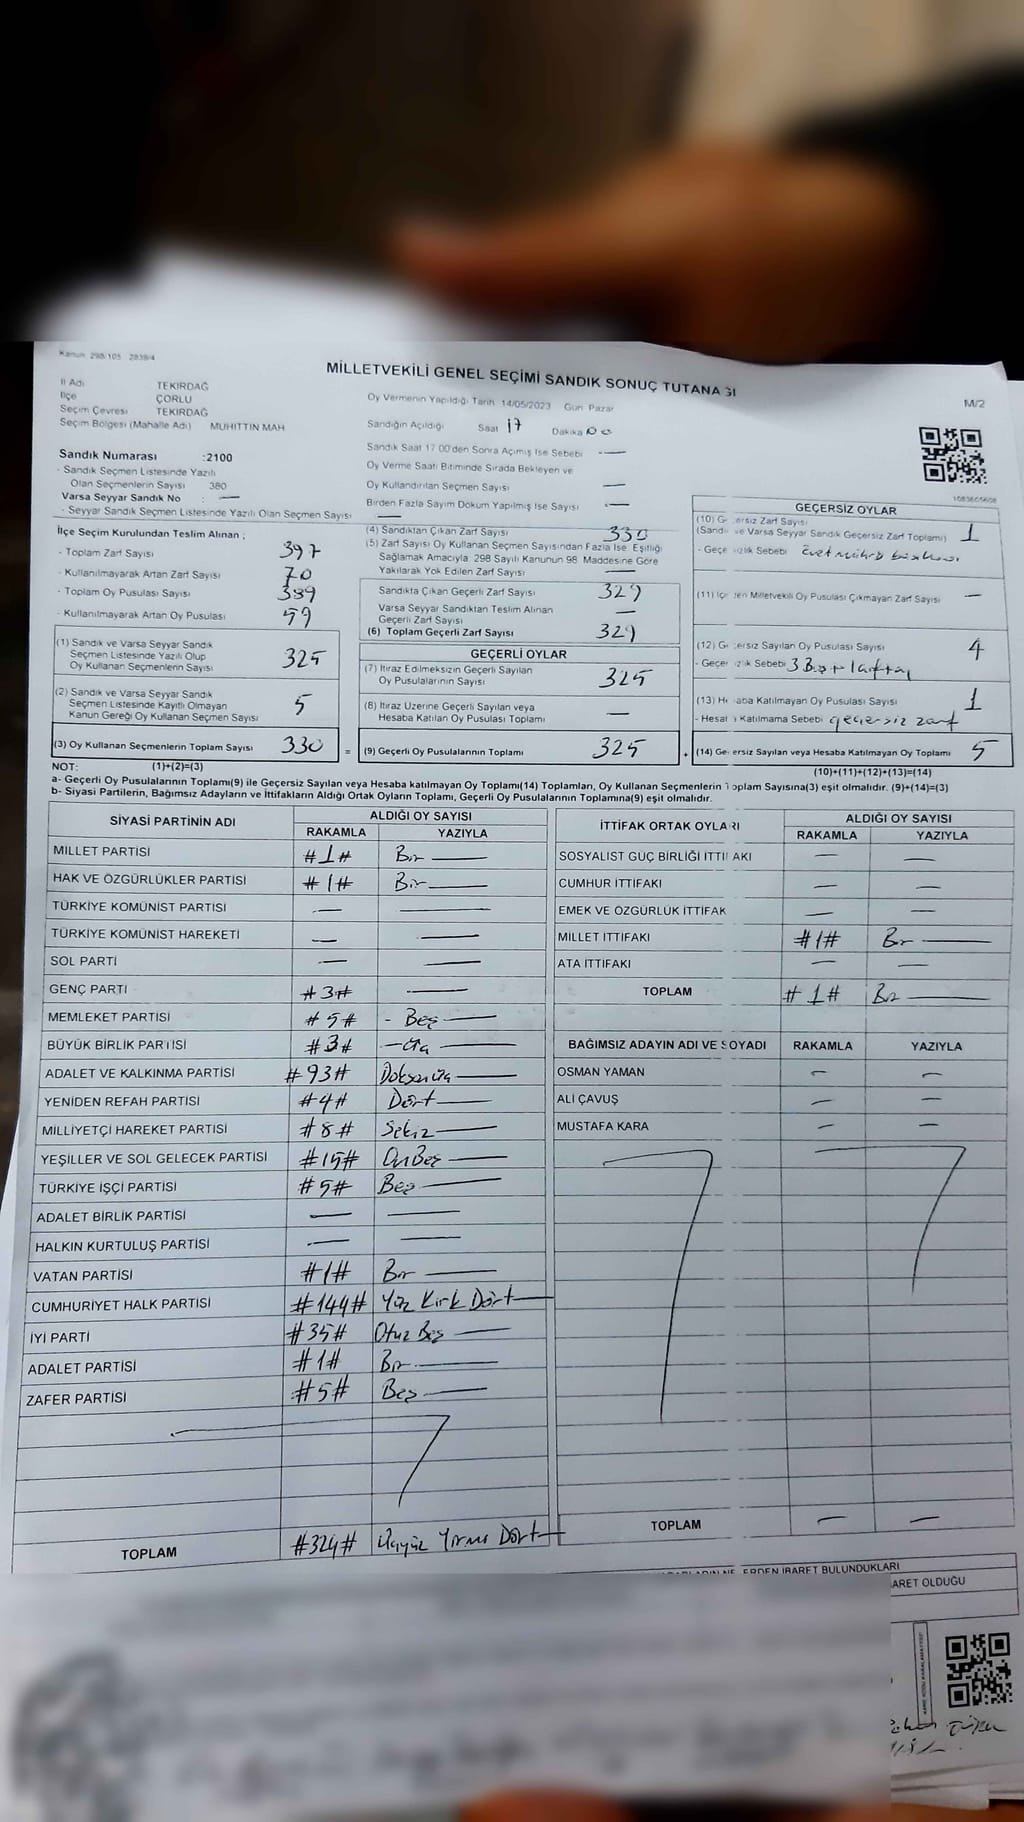 Kanun 298/105 2839/4
MİLLETVEKİLİ GENEL SEÇİMİ SANDIK SONUÇ TUTANAĞI
M/2
İl Adı TEKİRDAĞ
İlçe ÇORLU
Seçim Çevresi TEKİRDAĞ
Seçim Bölgesi (Mahalle Adı) MUHİTTİN MAH
Sandık Numarası :2100
- Sandık Seçmen Listesinde Yazılı
Olan Seçmenlerin Sayısı 380
Varsa Seyyar Sandık No : —
- Seyyar Sandık Seçmen Listesinde Yazılı Olan Seçmen Sayısı —
Oy Vermenin Yapıldığı Tarih 14/05/2023 Gün Pazar
Sandığın Açıldığı Saat 17 Dakika 00
Sandık Saat 17.00'den Sonra Açılmış İse Sebebi —
Oy Verme Saati Bitiminde Sırada Bekleyen ve
Oy Kullandırılan Seçmen Sayısı —
Birden Fazla Sayım Döküm Yapılmış İse Sayısı —
1083605608
İlçe Seçim Kurulundan Teslim Alınan ;
- Toplam Zarf Sayısı 397
- Kullanılmayarak Artan Zarf Sayısı 70
- Toplam Oy Pusulası Sayısı 389
- Kullanılmayarak Artan Oy Pusulası 59
(1) Sandık ve Varsa Seyyar Sandık
Seçmen Listesinde Yazılı Olup
Oy Kullanan Seçmenlerin Sayısı 325
(2) Sandık ve Varsa Seyyar Sandık
Seçmen Listesinde Kayıtlı Olmayan
Kanun Gereği Oy Kullanan Seçmen Sayısı 5
(3) Oy Kullanan Seçmenlerin Toplam Sayısı 330 =
(4) Sandıktan Çıkan Zarf Sayısı 330
(5) Zarf Sayısı Oy Kullanan Seçmen Sayısından Fazla İse, Eşitliği
Sağlamak Amacıyla, 298 Sayılı Kanunun 98. Maddesine Göre
Yakılarak Yok Edilen Zarf Sayısı —
Sandıkta Çıkan Geçerli Zarf Sayısı 329
Varsa Seyyar Sandıktan Teslim Alınan
Geçerli Zarf Sayısı —
(6) Toplam Geçerli Zarf Sayısı 329
GEÇERLİ OYLAR
(7) İtiraz Edilmeksizin Geçerli Sayılan
Oy Pusulalarının Sayısı 325
(8) İtiraz Üzerine Geçerli Sayılan veya
Hesaba Katılan Oy Pusulası Toplamı —
(9) Geçerli Oy Pusulalarının Toplamı 325 +
GEÇERSİZ OYLAR
(10) Geçersiz Zarf Sayısı
(Sandık ve Varsa Seyyar Sandık Geçersiz Zarf Toplamı) 1
- Geçersizlik Sebebi Evet Mührü
(11) İçinden Milletvekili Oy Pusulası Çıkmayan Zarf Sayısı —
(12) Geçersiz Sayılan Oy Pusulası Sayısı 4
- Geçersizlik Sebebi 3
(13) Hesaba Katılmayan Oy Pusulası Sayısı 1
- Hesaba Katılmama Sebebi geçersiz zarf
(14) Geçersiz Sayılan veya Hesaba Katılmayan Oy Toplamı 5
NOT: (1)+(2)=(3) (10)+(11)+(12)+(13)=(14)
a- Geçerli Oy Pusulalarının Toplamı(9) ile Geçersiz Sayılan veya Hesaba katılmayan Oy Toplamı(14) Toplamları, Oy Kullanan Seçmenlerin Toplam Sayısına(3) eşit olmalıdır. (9)+(14)=(3)
b- Siyasi Partilerin, Bağımsız Adayların ve İttifakların Aldığı Ortak Oyların Toplamı, Geçerli Oy Pusulalarının Toplamına(9) eşit olmalıdır.
SİYASİ PARTİNİN ADI ALDIĞI OY SAYISI
RAKAMLA YAZIYLA
MİLLET PARTİSİ #1# Bir —
HAK VE ÖZGÜRLÜKLER PARTİSİ #1# Bir —
TÜRKİYE KOMÜNİST PARTİSİ — —
TÜRKİYE KOMÜNİST HAREKETİ — —
SOL PARTİ — —
GENÇ PARTİ #3# —
MEMLEKET PARTİSİ #5# - Beş —
BÜYÜK BİRLİK PARTİSİ #3# — Üç —
ADALET VE KALKINMA PARTİSİ #93# Doksan Üç —
YENİDEN REFAH PARTİSİ #4# Dört —
MİLLİYETÇİ HAREKET PARTİSİ #8# Sekiz —
YEŞİLLER VE SOL GELECEK PARTİSİ #15# On Beş —
TÜRKİYE İŞÇİ PARTİSİ #5# Beş —
ADALET BİRLİK PARTİSİ — —
HALKIN KURTULUŞ PARTİSİ — —
VATAN PARTİSİ #1# Bir —
CUMHURİYET HALK PARTİSİ #144# Yüz Kırk Dört —
İYİ PARTİ #35# Otuz Beş —
ADALET PARTİSİ #1# Bir —
ZAFER PARTİSİ #5# Beş —
TOPLAM #324# Üçyüz Yirmi Dört —
İTTİFAK ORTAK OYLARI ALDIĞI OY SAYISI
RAKAMLA YAZIYLA
SOSYALİST GÜÇ BİRLİĞİ İTTİFAKI — —
CUMHUR İTTİFAKI — —
EMEK VE ÖZGÜRLÜK İTTİFAK — —
MİLLET İTTİFAKI #1# Bir —
ATA İTTİFAKI — —
TOPLAM #1# Bir —
BAĞIMSIZ ADAYIN ADI VE SOYADI RAKAMLA YAZIYLA
OSMAN YAMAN — —
ALİ ÇAVUŞ — —
MUSTAFA KARA — —
TOPLAM — —
ERDEN İBARET BULUNDUKLARI
ARET OLDUĞU